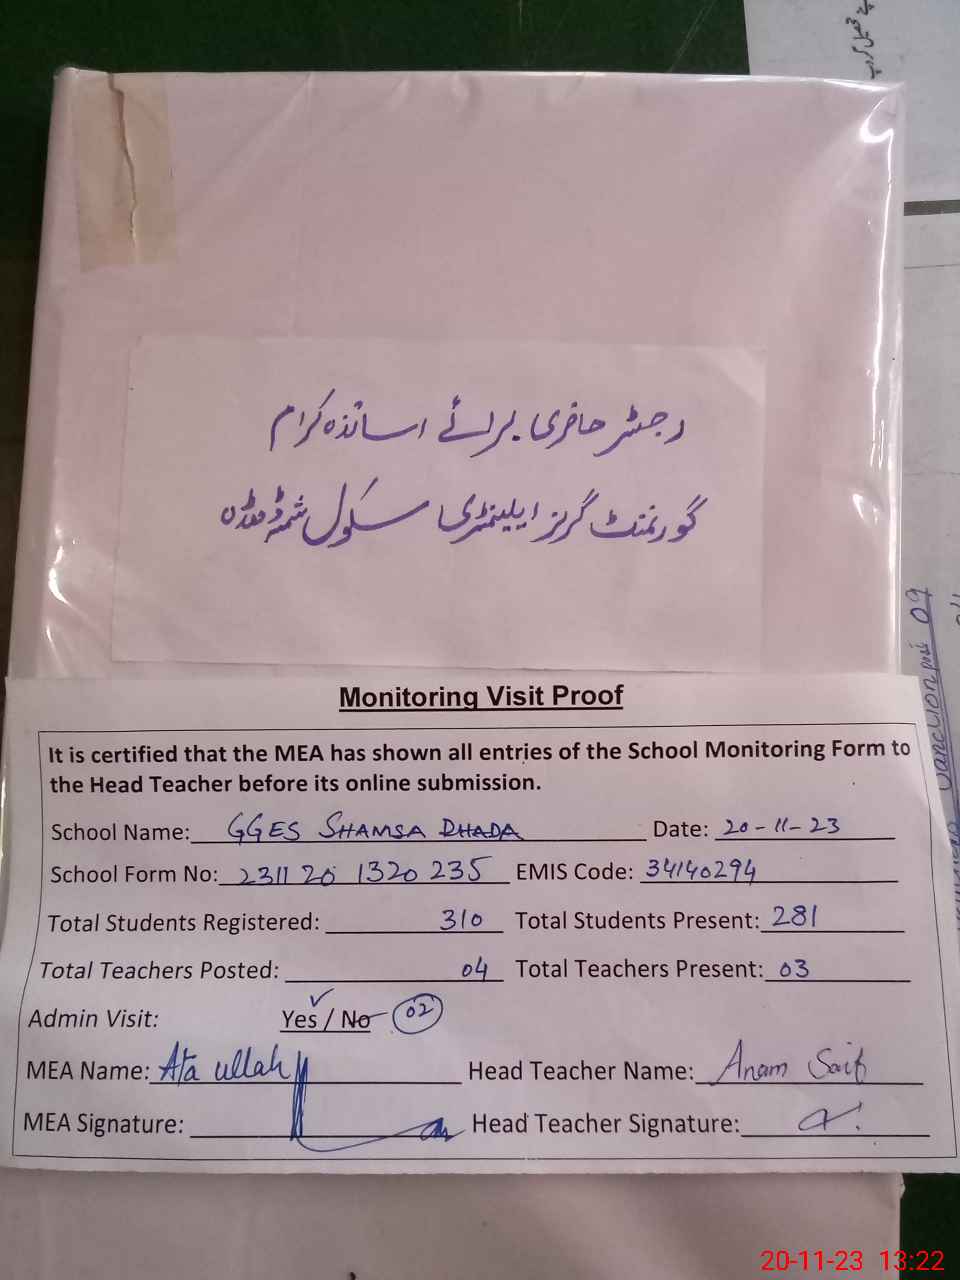 رجسٹر حاضری برائے اساتذہ کرام
گورنمنٹ گرلز ایلیمنٹری سکول
Monitoring Visit Proof
It is certified that the MEA has shown all entries of the School Monitoring Form to
the Head Teacher before its online submission.
School Name: GGES SHAMSA DHADA Date: 20-11-23
School Form No: 231120 1320 235 EMIS Code: 34140294
Total Students Registered: 310 Total Students Present: 281
Total Teachers Posted: 04 Total Teachers Present: 03
Admin Visit: Yes / No 02
MEA Name: Ata ullah Head Teacher Name: Anam Saif
MEA Signature: Head Teacher Signature:
Sanction post 09
20-11-23 13:22